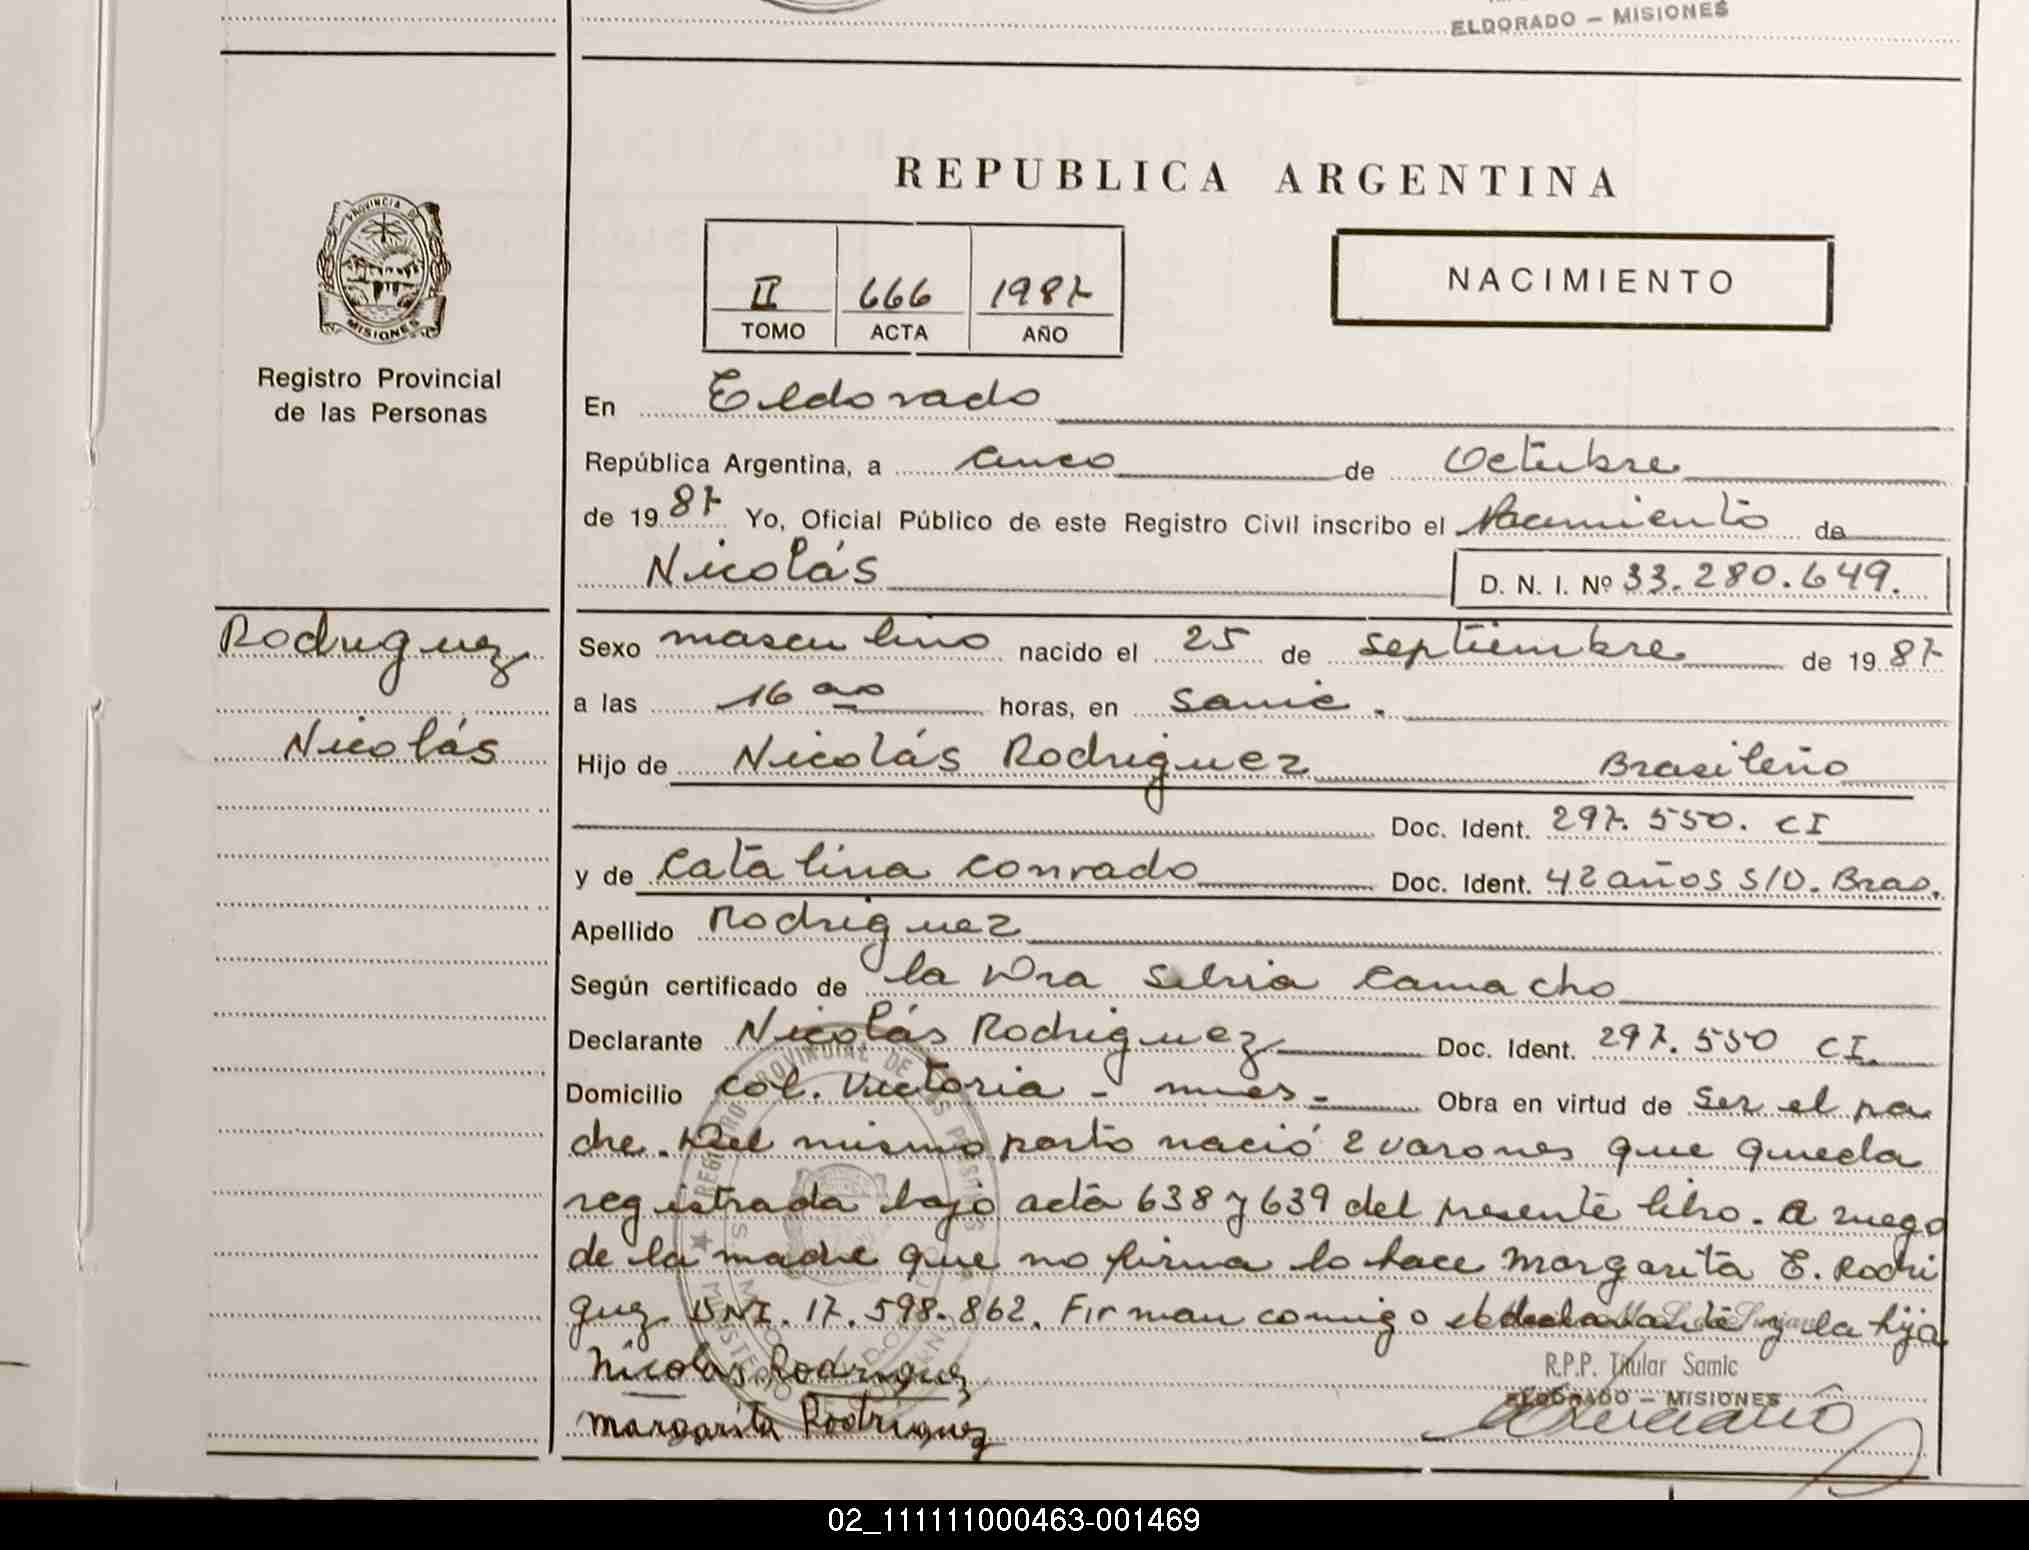 ELDORADO – MISIONES
REPUBLICA ARGENTINA
PROVINCIA DE
MISIONES
Registro Provincial
de las Personas
II 666 1987
TOMO ACTA AÑO
NACIMIENTO
En Eldorado
República Argentina, a cinco de Octubre
de 19 87 Yo, Oficial Público de este Registro Civil inscribo el Nacimiento de
Nicolás D. N. I. Nº 33.280.649.
Rodriguez
Nicolás
Sexo masculino nacido el 25 de septiembre de 19 87
a las 16 horas, en Samic.
Hijo de Nicolás Rodriguez Brasileño
Doc. Ident. 297.550. CI
y de Catalina Conrado Doc. Ident. 42 años S/D. Bras.
Apellido Rodriguez
Según certificado de la Dra Silvia Camacho
Declarante Nicolás Rodriguez Doc. Ident. 297.550 CI.
Domicilio Col. Victoria - mnes - Obra en virtud de ser el pa
dre. Del mismo parto nació 2 varones que queda
registrada bajo acta 638 y 639 del presente libro. A ruego
de la madre que no firma lo hace Margarita E. Rodri
guez DNI. 17.598.862. Firman comigo el declarante y la hija
Nicolas Rodriguez
R.P.P. Titular Samic
ELDORADO – MISIONES
Margarita Rodriguez
02_111111000463-001469